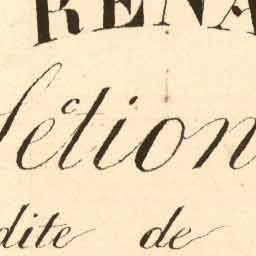 RENA
étion
dite de